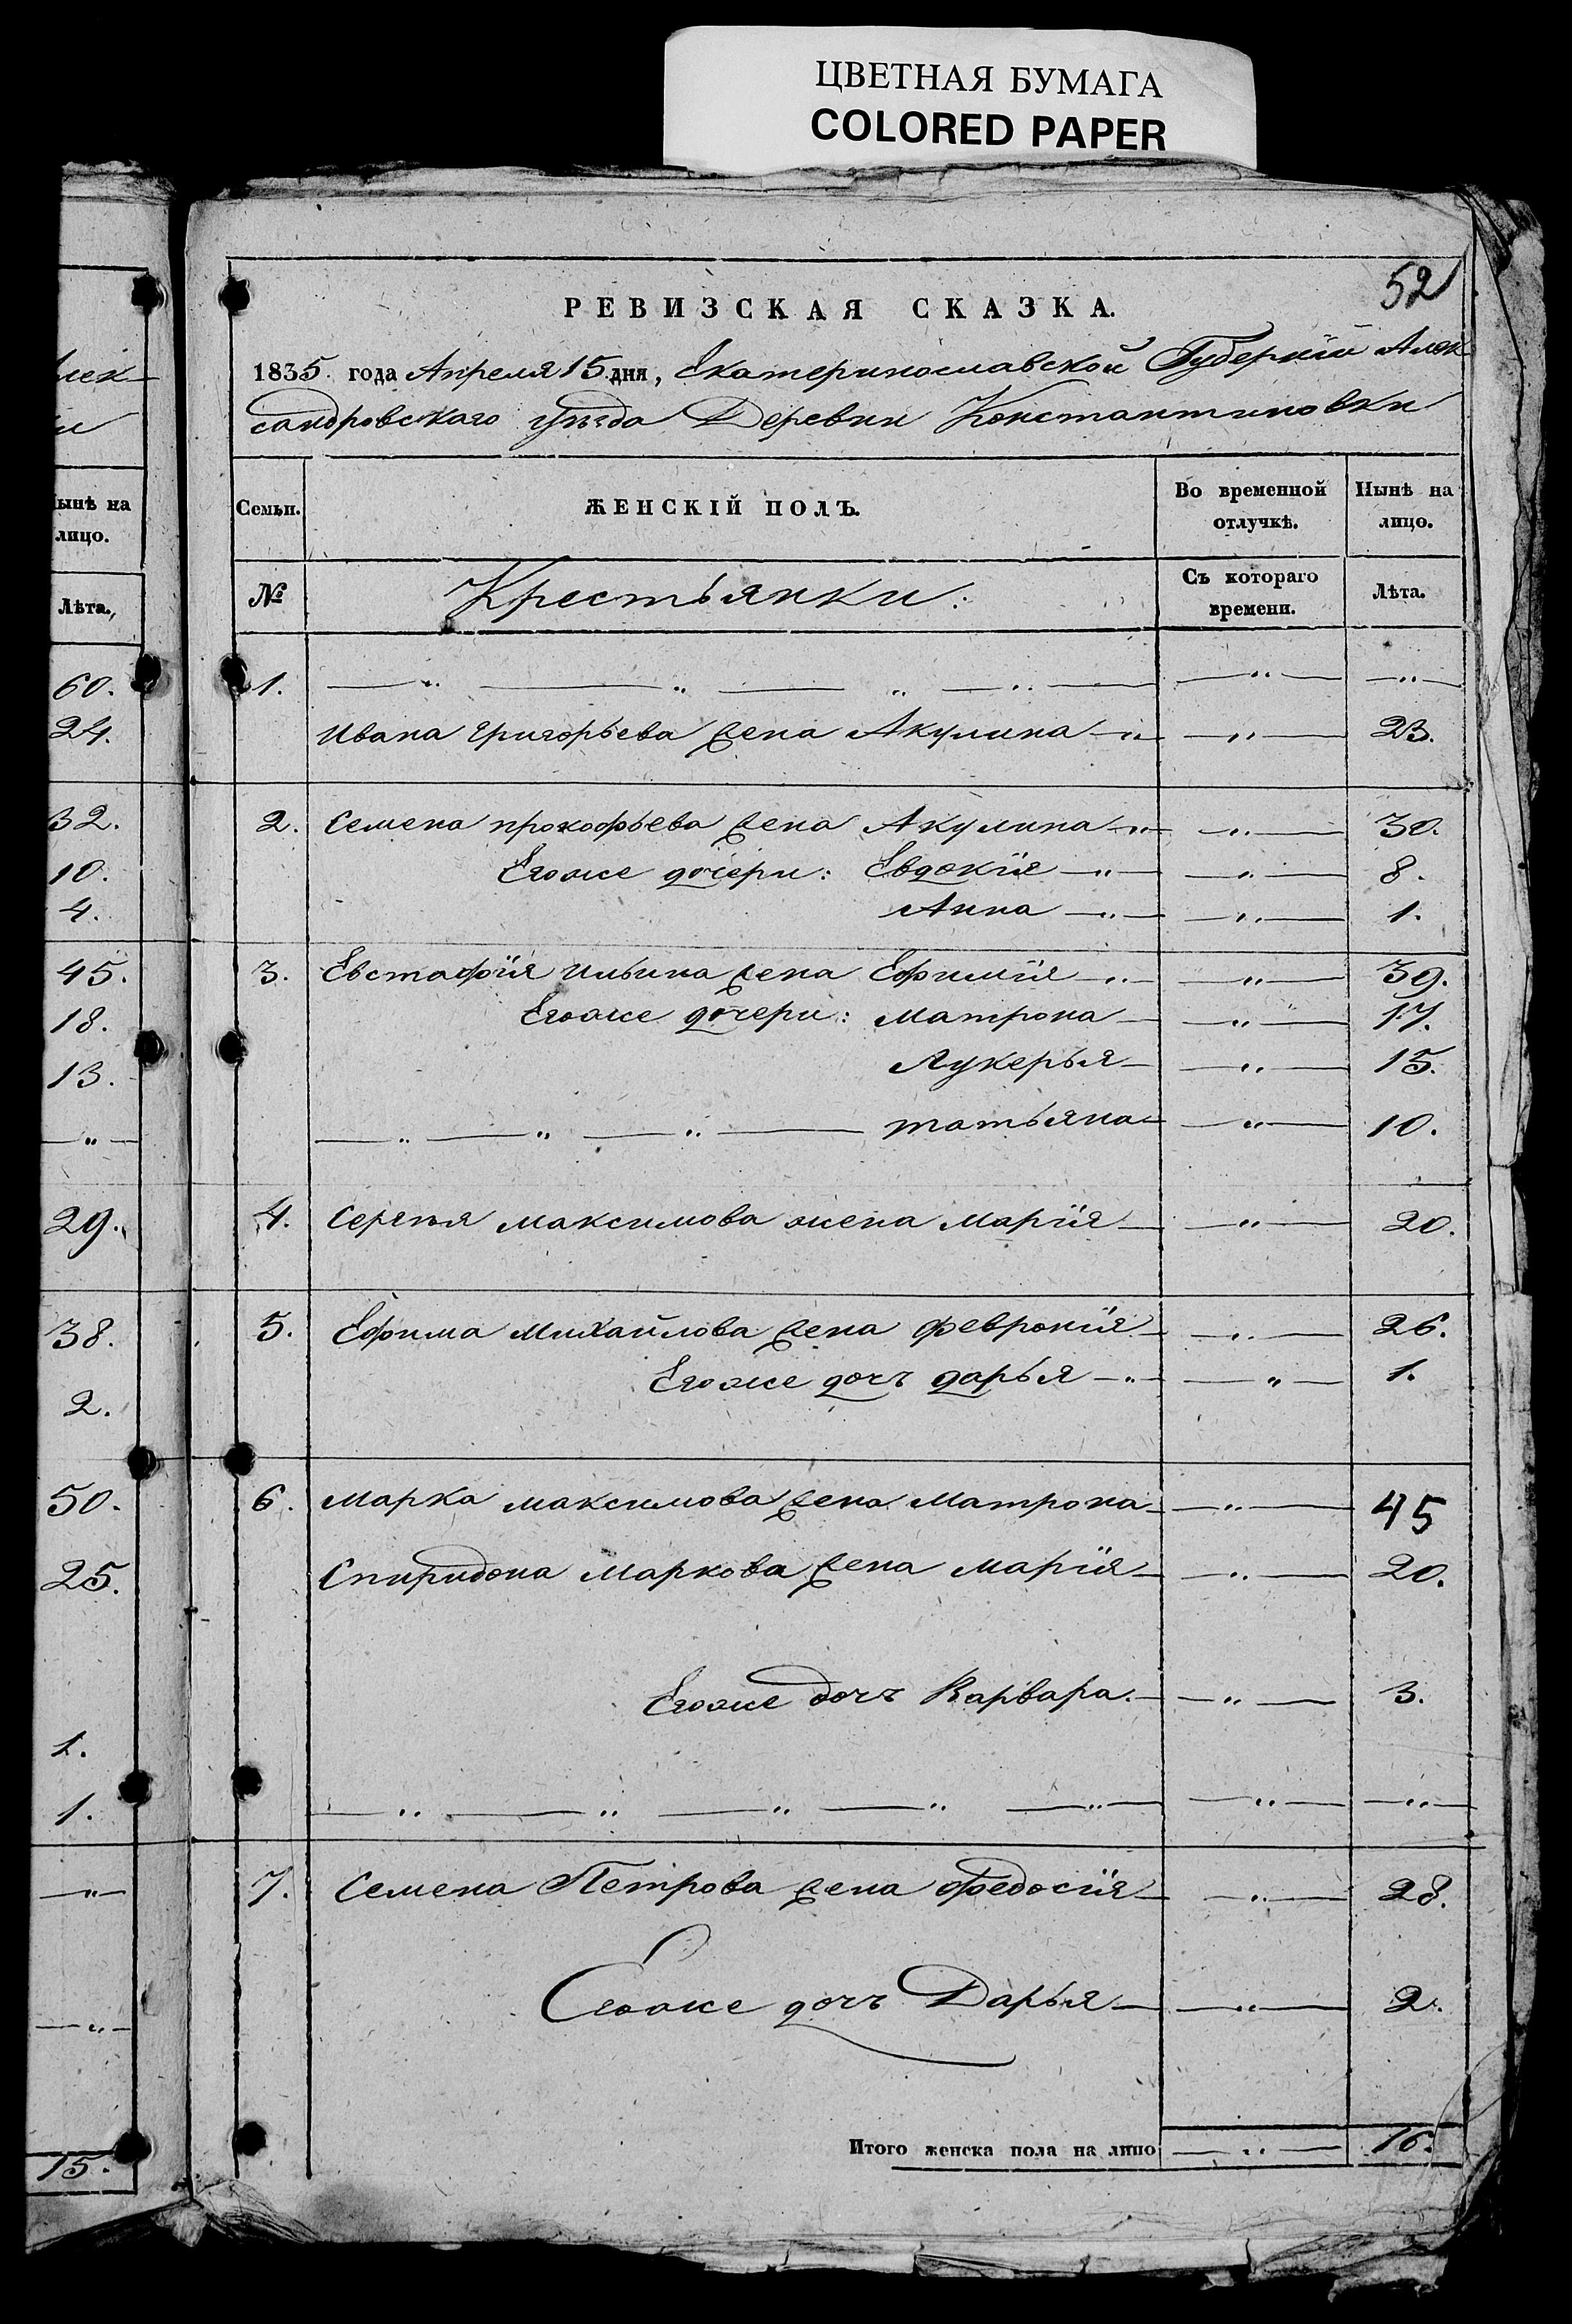 ЦВЕТНАЯ БУМАГА
COLORED PAPER
52
РЕВИЗСКАЯ СКАЗКА.
1835. года Апреля 15 дня, Екатеринославской Губерніи Алек
сандровскаго уѣзда Деревни Константиновки
Семьи.
ЖЕНСКІЙ ПОЛЪ.
Во временной отлучкѣ.
Нынѣ на лицо.
№
Крестьянки:
Съ котораго времени.
Лѣта.
1. — " — " — " — " — — " — — " —
Ивана Григорьева жена Акулина — " — — " — 23.
2. Семена прокофьева жена Акулина — " — — " — 30.
Егоже дочери: Евдокія — " — — " — 8.
Анна — " — — " — 1.
3. Евстафія Ильина жена Ефимія — " — — " — 39.
Егоже дочери: Матрона — — " — 17.
Лукерья — — " — 15.
— " — " — " — татьяна — — " — 10.
4. Сергѣя Максимова жена Марія — — " — 20.
5. Ефима Михайлова жена Февронія — — " — 26.
Егоже дочь дарья — " — — " — 1.
6. Марка Максимова жена Матрона — — " — 45
Спиридона Маркова жена Марія — — " — 20.
Егоже дочъ Варвара. — — " — 3.
— " — " — " — " — " — — " — — " —
7. Семена Петрова жена Федосія — — " — 28.
Егоже дочъ Дарья — — " — 2.
Итого женска пола на лицо — " — 16.
лек
и
Нынѣ на
лицо.
Лѣта.
60.
24.
32.
10.
4.
45.
18.
13.
— " —
29.
38.
2.
50.
25.
1.
1.
— " —
— " —
15.